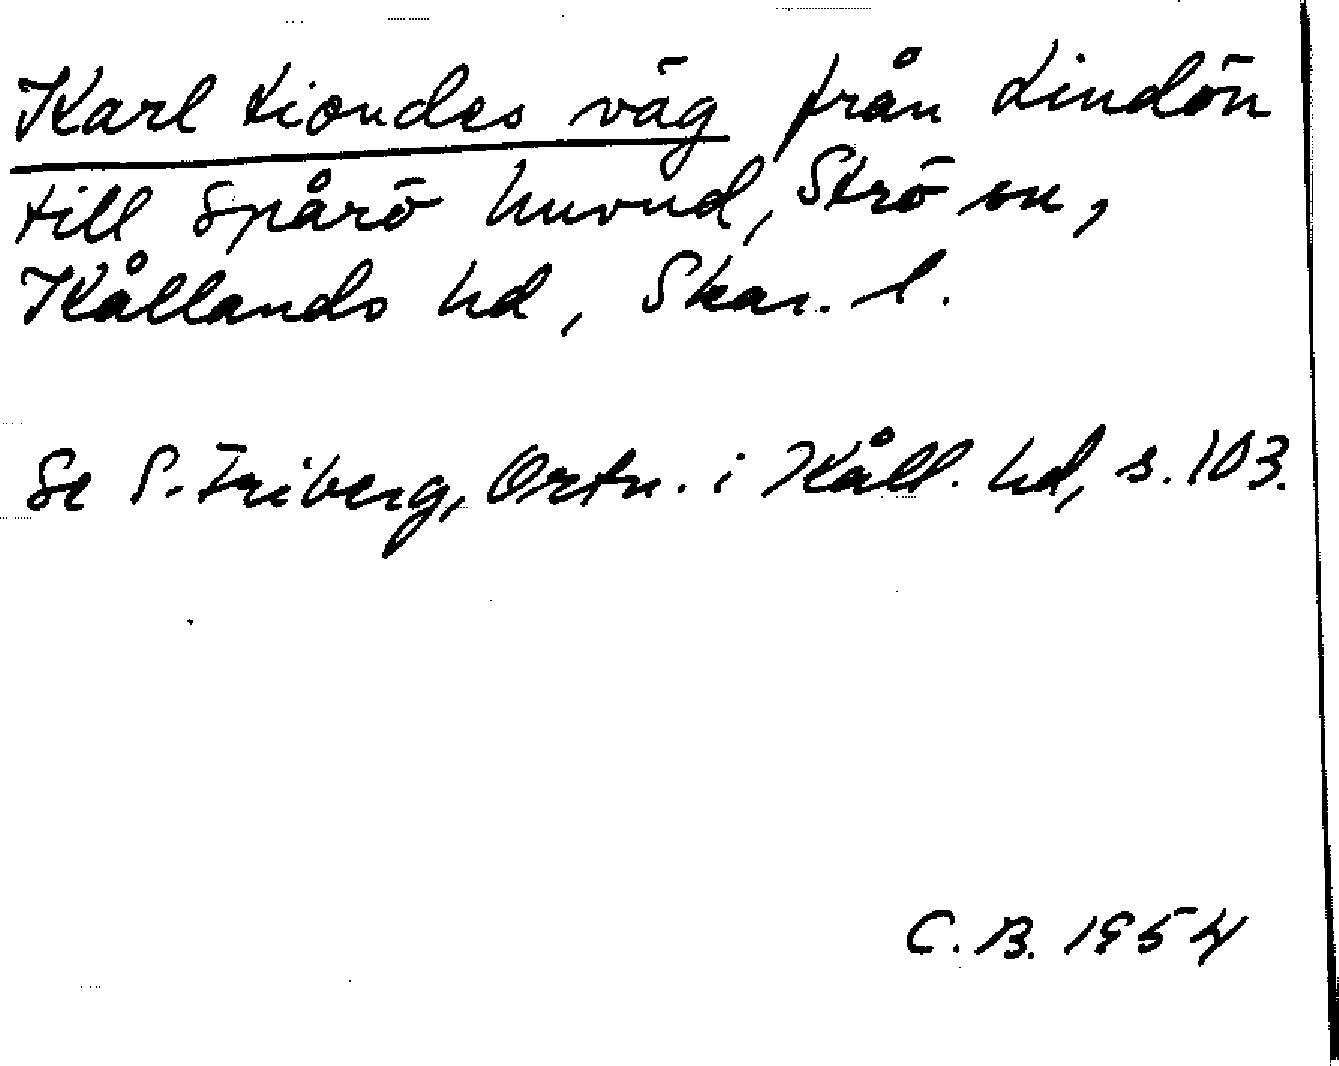 Karl tiondes väg från Lindön
till Spårö huvud, Strö sn,
Kållands hd, Skar. l.
Se S. Friberg, Ortn. i Kåll. hd, s. 103.
C. B. 1954